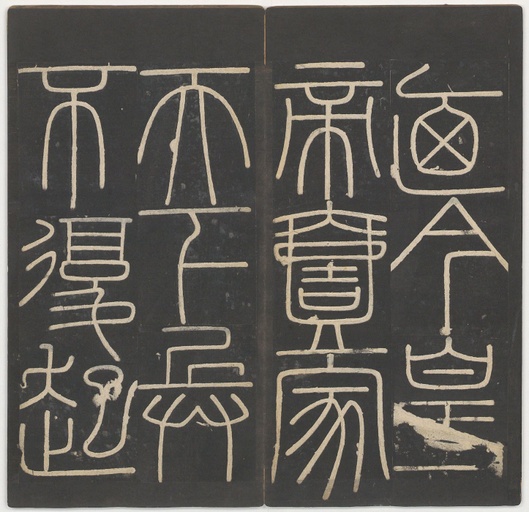 廼今皇
帝壹家
天下兵
不復起